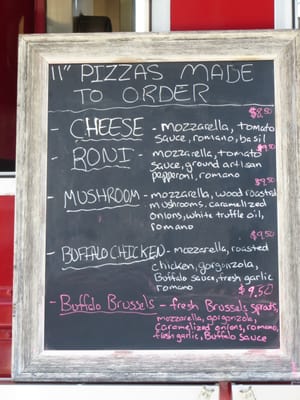 11" PIZZAS MADE
TO ORDER
$8.50
- CHEESE - mozzarella, tomato
sauce, romano, basil
$9.50
- RONI - mozzarella, tomato
sauce, ground artisan
pepperoni, romano
$9.50
- MUSHROOM - mozzarella, wood roasted
mushrooms, caramelized
onions, white truffle oil,
romano
$9.50
- BUFFALO CHICKEN - mozzarella, roasted
chicken, gorgonzola,
Buffalo sauce, fresh garlic
romano
$9.50
- Buffalo Brussels - fresh Brussels sprouts,
mozzarella, gorgonzola,
caramelized onions, romano,
fresh garlic, Buffalo Sauce